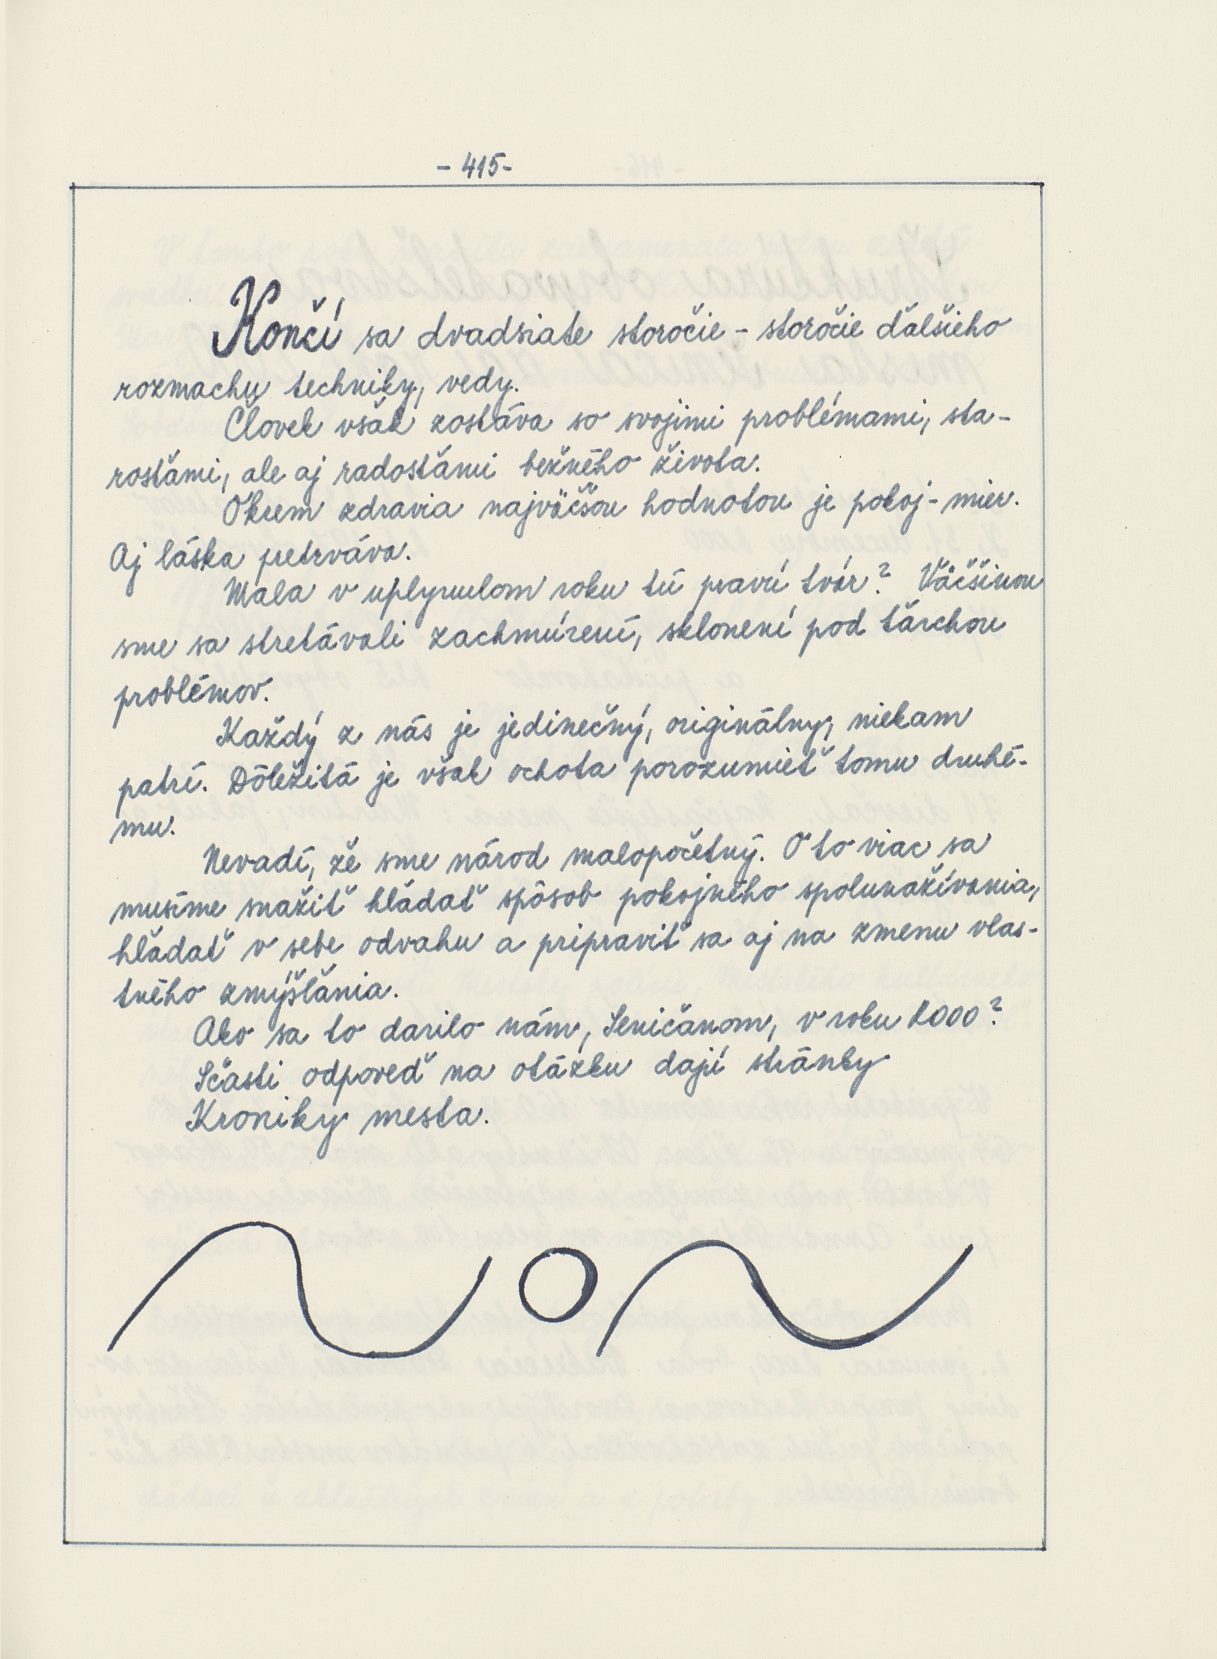 - 415-
Končí sa dvadsiate storočie - storočie ďalšieho
rozmachu techniky, vedy.
Človek však zostáva so svojimi problémami, sta-
rosťami, ale aj radosťami bežného života.
Okrem zdravia najväčšou hodnotou je pokoj - mier.
Aj láska pretrváva.
Mala v uplynulom roku tú pravú tvár? Väčšinou
sme sa stretávali zachmúrení, sklonení pod ťarchou
problémov.
Každý z nás je jedinečný, originálny, niekam
patrí. Dôležitá je však ochota porozumieť tomu druhé-
mu.
Nevadí, že sme národ malopočetný. O to viac sa
musíme snažiť hľadať spôsob pokojného spolunažívania,
hľadať v sebe odvahu a pripraviť sa aj na zmenu vlas-
tného zmýšľania.
Ako sa to darilo nám, Seničanom, v roku 2000?
Sčasti odpoveď na otázku dajú stránky
Kroniky mesta.